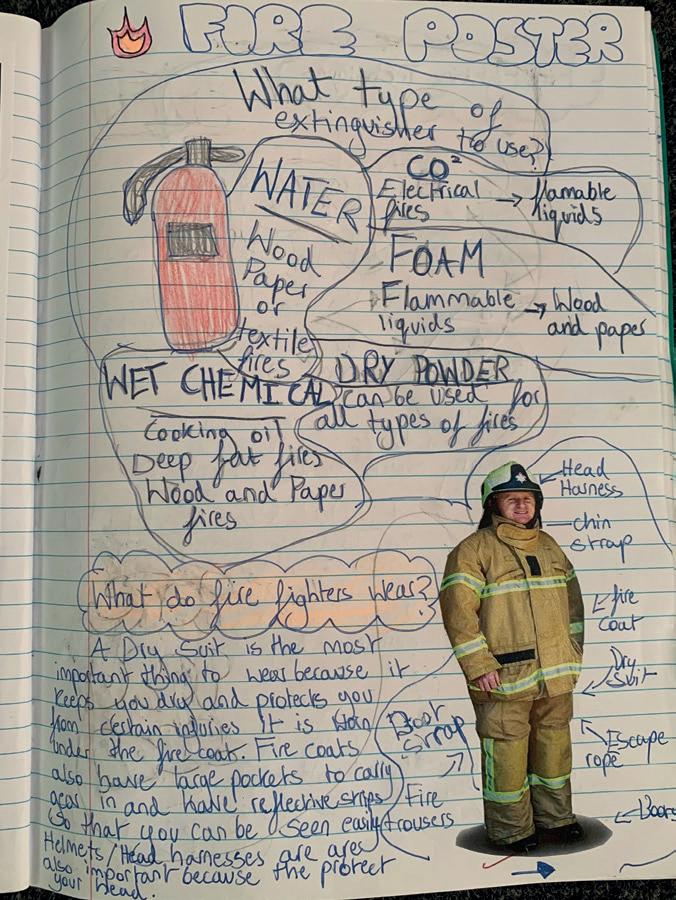 FIRE POSTER
What type of
extinguisher to use?
WATER
Wood
Paper
or
textile
fires
CO²
Electrical → flamable
fires liquids
FOAM
Flammable → Wood
liquids and paper
WET CHEMICAL
Cooking oil
Deep fat fires
Wood and Paper
fires
DRY POWDER
can be used for
all types of fires
What do fire fighters wear?
A Dry Suit is the most
important thing to wear because it
keeps you dry and protects you
from certain injuries It is worn
under the fire coat. Fire coats
also have large pockets to carry
gear in and have reflective strips
so that you can be seen easily
Helmets/Head harnesses are
also important because the protect
your head.
Head
Harness
chin
strap
fire
coat
Dry
Suit
Escape
rope
Boots
Door
Strap
Fire
trousers